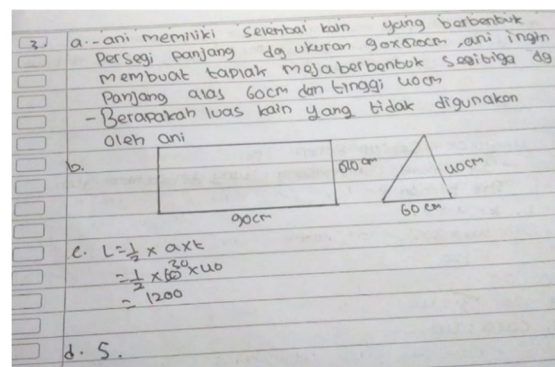 3. a. - ani memiliki selembai kain yang berbentuk
persegi panjang dg ukuran 90x610cm, ani ingin
membuat taplak meja berbentuk segitiga dg
panjang alas 60cm dan tinggi 40cm
- Berapakah luas kain yang tidak digunakan
oleh ani
b.
40cm
90cm
60 cm
c. L = 1/2 x a x t
= 1/2 x 60 30 x 40
= 1200
d. 5.